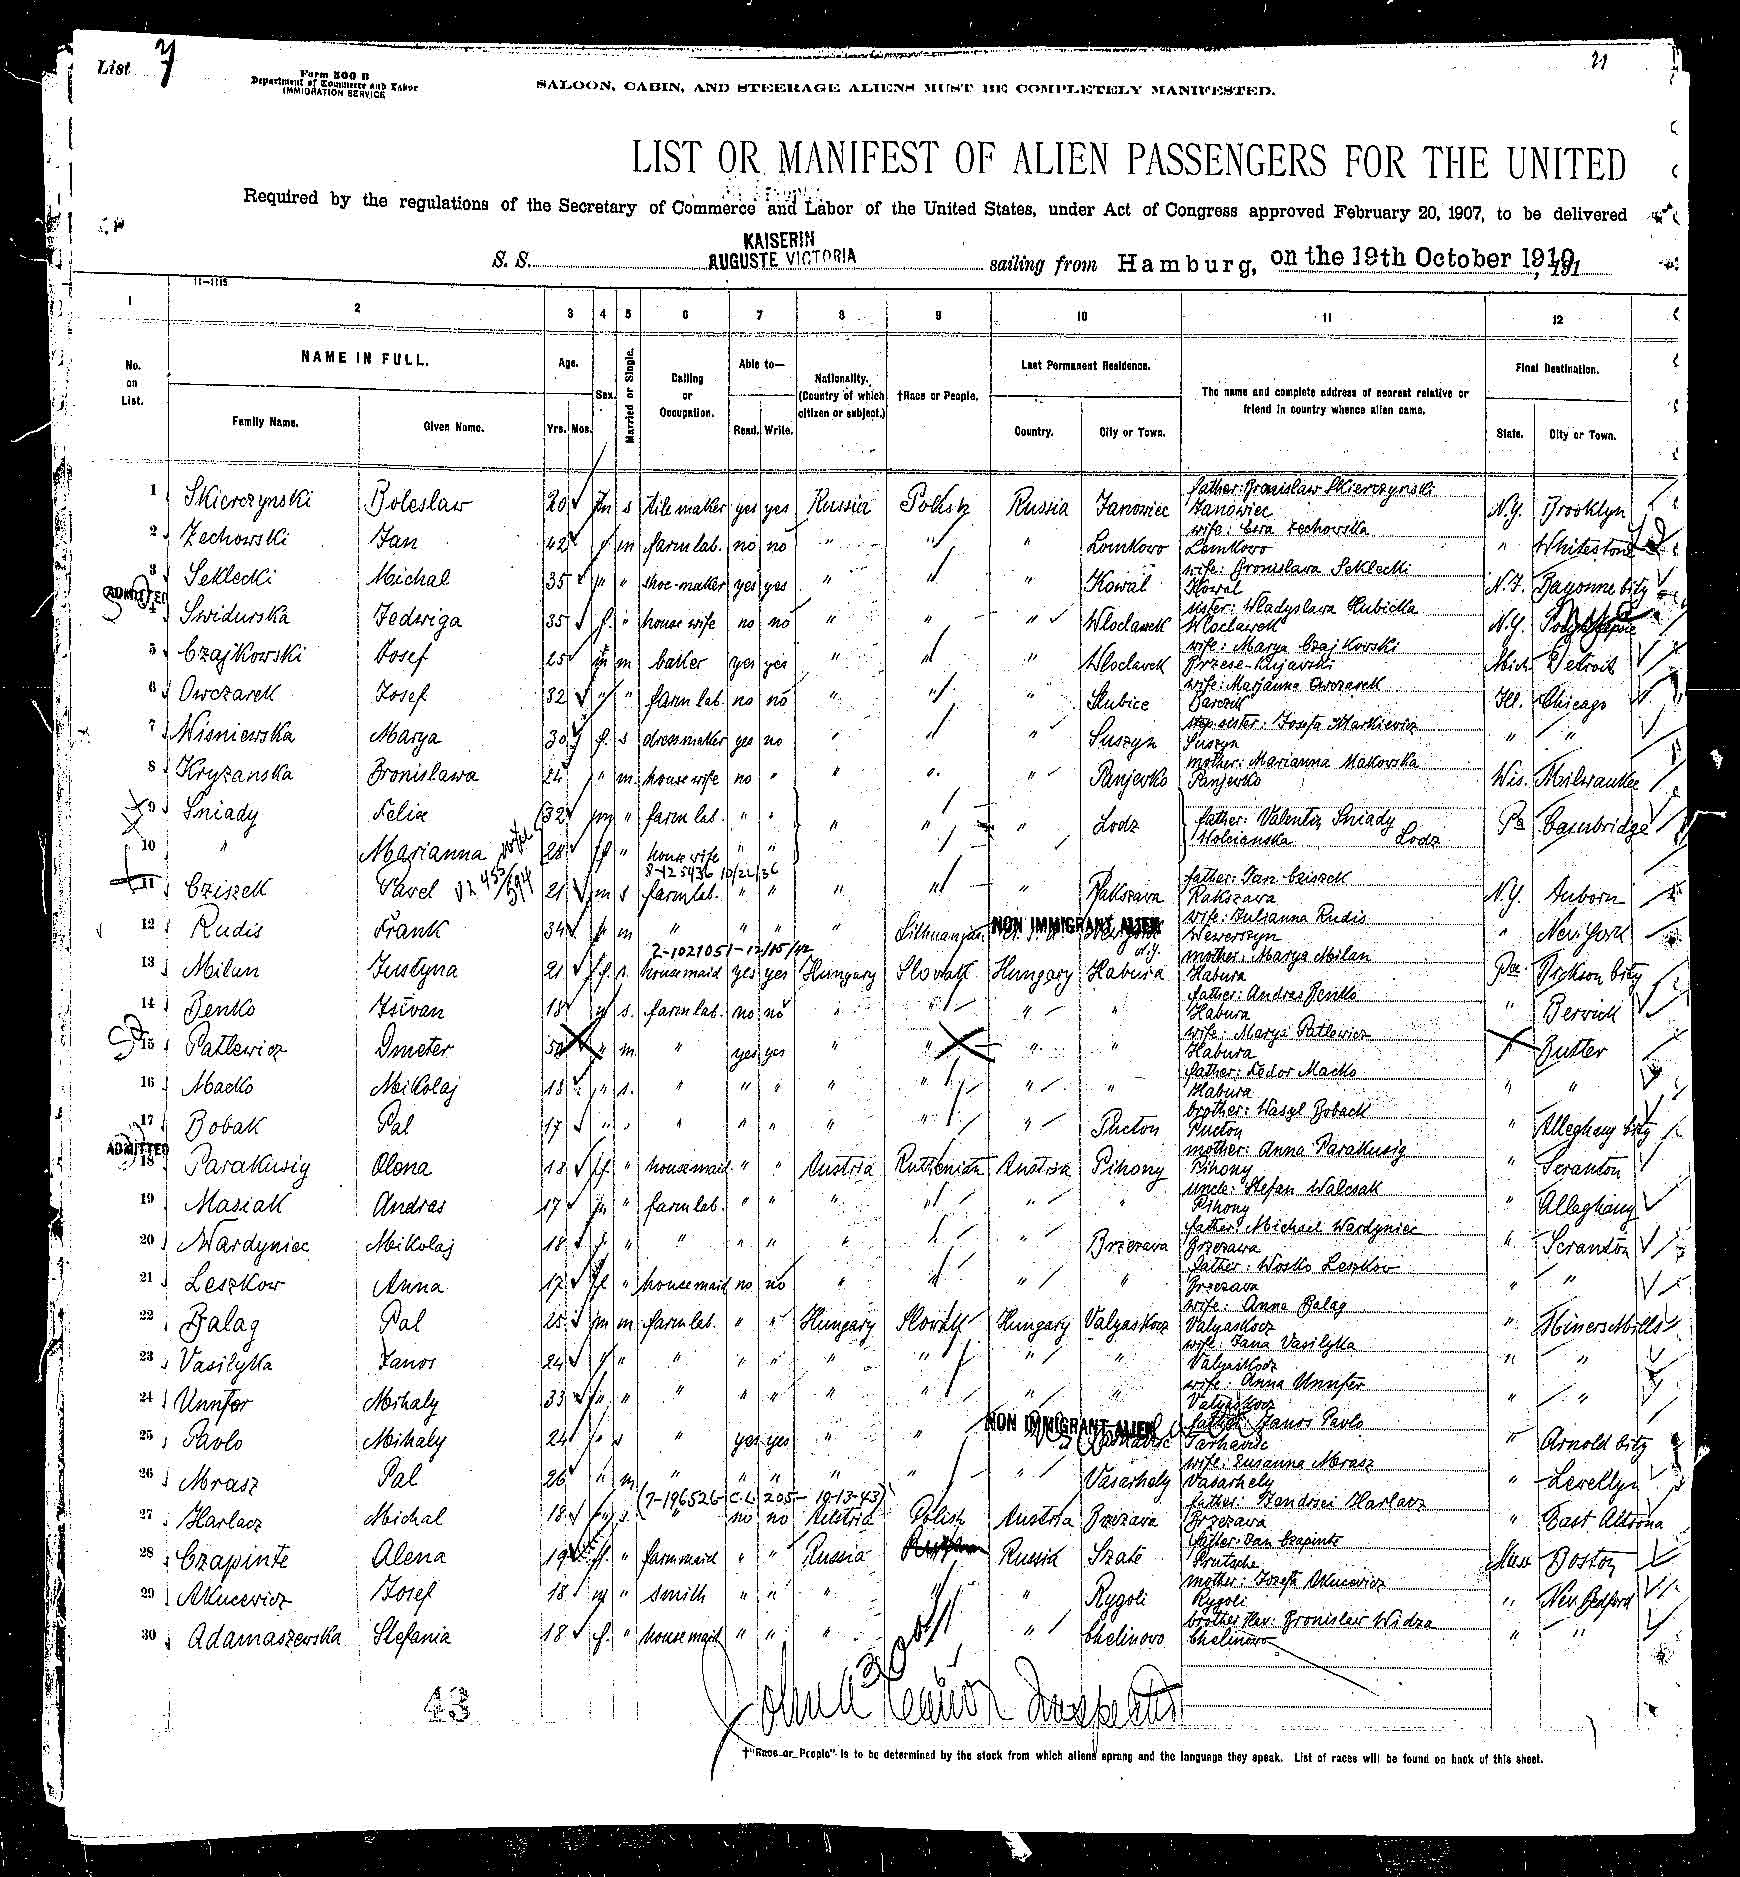 List 7
21
Form 500 B
Department of Commerce and Labor
IMMIGRATION SERVICE
SALOON, CABIN, AND STEERAGE ALIENS MUST BE COMPLETELY MANIFESTED.
LIST OR MANIFEST OF ALIEN PASSENGERS FOR THE UNITED
Required by the regulations of the Secretary of Commerce and Labor of the United States, under Act of Congress approved February 20, 1907, to be delivered
S. S. KAISERIN AUGUSTE VICTORIA sailing from Hamburg, on the 19th October 1910, 191
11-1115
1 2 3 4 5 6 7 8 9 10 11 12
No. on List. NAME IN FULL. Age. Sex. Married or Single. Calling or Occupation. Able to— Nationality. (Country of which citizen or subject.) †Race or People. Last Permanent Residence. The name and complete address of nearest relative or friend in country whence alien came. Final Destination.
Family Name. Given Name. Yrs. Mos. Read. Write. Country. City or Town. State. City or Town.
father: Bronislaw Skierczynski
1 Skierczynski Boleslaw 20 m s tile maker yes yes Russia Polish Russia Janowiec Janowiec N.Y. Brooklyn
wife: Ewa Zechowska
2 Zechowski Jan 42 " m farm lab. no no " " " Lomkowo Lomkowo " Whitestone
wife: Bronislawa Seklecki
3 Seklecki Michal 35 " " shoe-maker yes yes " " " Kowal Kowal N.J. Bayonne City
ADMITTED
sister: Wladyslawa Rubicka
4 Swidurska Jedwiga 35 f. " house wife no no " " " Wloclawek Wloclawek N.Y.
wife: Marya Czajkowski
5 Czajkowski Josef 25 m m baker yes yes " " " Wloclawek Brzesc-Kujawski Mich. Detroit
wife: Marjanna Owczarek
6 Owczarek Josef 32 " " farm lab. no no " " " Slubice Ill. Chicago
step sister: Josefa Markiewicz
7 Wisniewska Marya 30 f. s dressmaker yes no " " " Suszyn Suszyn " "
mother: Marianna Makowska
8 Kryzanska Bronislawa 24 " m. house wife no " " " " Panjewko Panjewko Wis. Milwaukee
9 Sniady Felix 32 m " farm lab. " " " " " Lodz father: Valentin Sniady Pa Cambridge
10 " Marianna wife 28 f " house wife " " Wolcianska Lodz
8-125436 10/22/36
father: Jan Cziszek
11 Cziszek Pavel V2 455/594 21 m s farm lab. " " " " " Rakszava Rakszava N.Y. Auborn
wife: Julianna Rudis
12 Rudis Frank 34 " m " " " " Lithuanian NON IMMIGRANT ALIEN Wewerszyn " New York
2-1021051-12/15/42
mother: Marya Milan
13 Milan Justyna 21 f. s. housemaid yes yes Hungary Slovak Hungary Habura Habura Pa. Dickson City
father: Andras Benko
14 Benko Istvan 18 m s. farm lab. no no " " " " Habura " Berwick
wife: Marya Patlewicz
15 Patlewicz Dmeter 50 " m. " yes yes " " " " Habura " Butler
father: Fedor Macko
16 Macko Mikolaj 18 " s. " " " " " " " Habura " "
brother: Wasyl Boback
17 Bobak Pal 17 " " " " " " " " Pucton Pucton " Alleghany City
ADMITTED
mother: Anna Parakusig
18 Parakusig Olena 18 f " housemaid " " Austria Ruthenian Austria Pihony Pihony " Scranton
uncle: Stefan Walcsak
19 Masiak Andras 17 m " farm lab. " " " " " " Pihony " Alleghany
father: Michael Wardyniec
20 Wardyniec Mikolaj 18 " " " " " " " " Brzezava Brzezawa " Scranton
father: Wosko Leszkow
21 Leszkow Anna 17 f " housemaid no no " " " " Brzezava " "
wife: Anna Balag
22 Balag Pal 25 m m farm lab. " " Hungary Slovak Hungary Valyaskocz Valyaskocz " Miners Mills
wife: Jana Vasilyka
23 Vasilyka Janos 24 " " " " " " " " " Valyaskocz " "
wife: Anna Unnfer
24 Unnfer Mihaly 33 " " " " " " " " " Valyaskocz " "
NON IMMIGRANT ALIEN
father: Janos Pavlo
25 Pavlo Mihaly 24 " s " yes yes " " " Arnold City
wife: Zusanna Mrasz
26 Mrasz Pal 26 " m " " " " " " Vasarhely Vasarhely " Lewellyn
(7-196526- C.L. 205- 10-13-43)
27 Harlacz Michal 18 " s. " no no Austria Polish Austria Brzezava Brzezawa " East Altoona
28 Czapinte Alena 19 f. " farm maid " " Russia Russia Szate Mass Boston
mother: Josefa Akucewicz
29 Akucewicz Josef 18 m " smith " " " " " Rygoli Rygoli " New Bedford
30 Adamaszewska Stefania 18 f. " housemaid " " " " " Chelinovo Chelinovo " "
43
Inspector
†"Race or People" is to be determined by the stock from which aliens sprang and the language they speak. List of races will be found on back of this sheet.